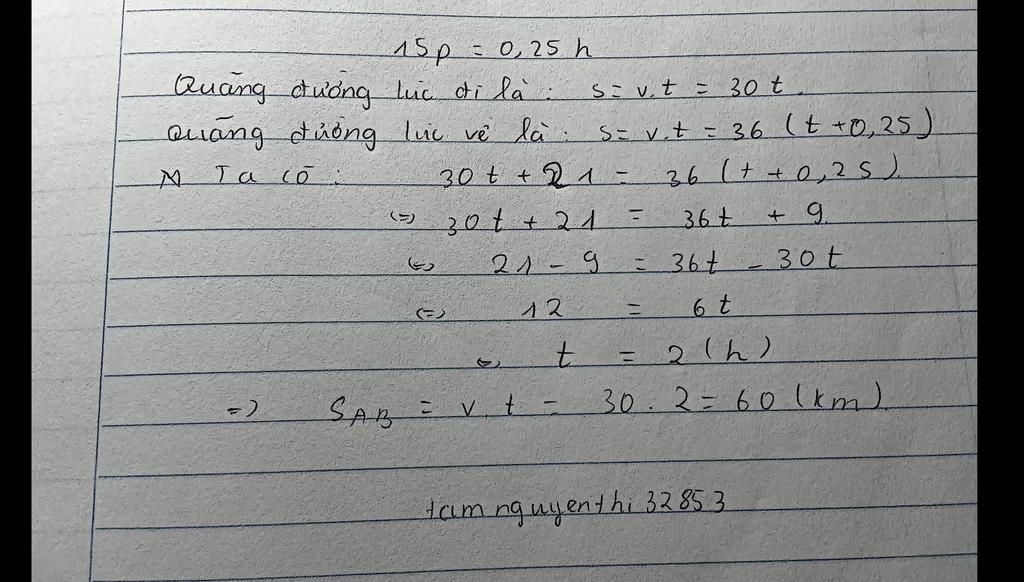 15p = 0,25 h
Quãng đường lúc đi là: s = v.t = 30 t.
Quãng đường lúc về là: s = v.t = 36 (t + 0,25)
Ta có: 30t + 21 = 36 (t + 0,25).
(=) 30t + 21 = 36t + 9.
(=) 21 - 9 = 36t - 30t
(=) 12 = 6t
(=) t = 2 (h)
=) SAB = v.t = 30.2 = 60 (km).
tamnguyenthi32853